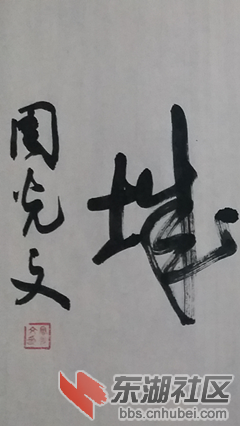 城
周光文
东湖社区
bbs.cnhubei.com